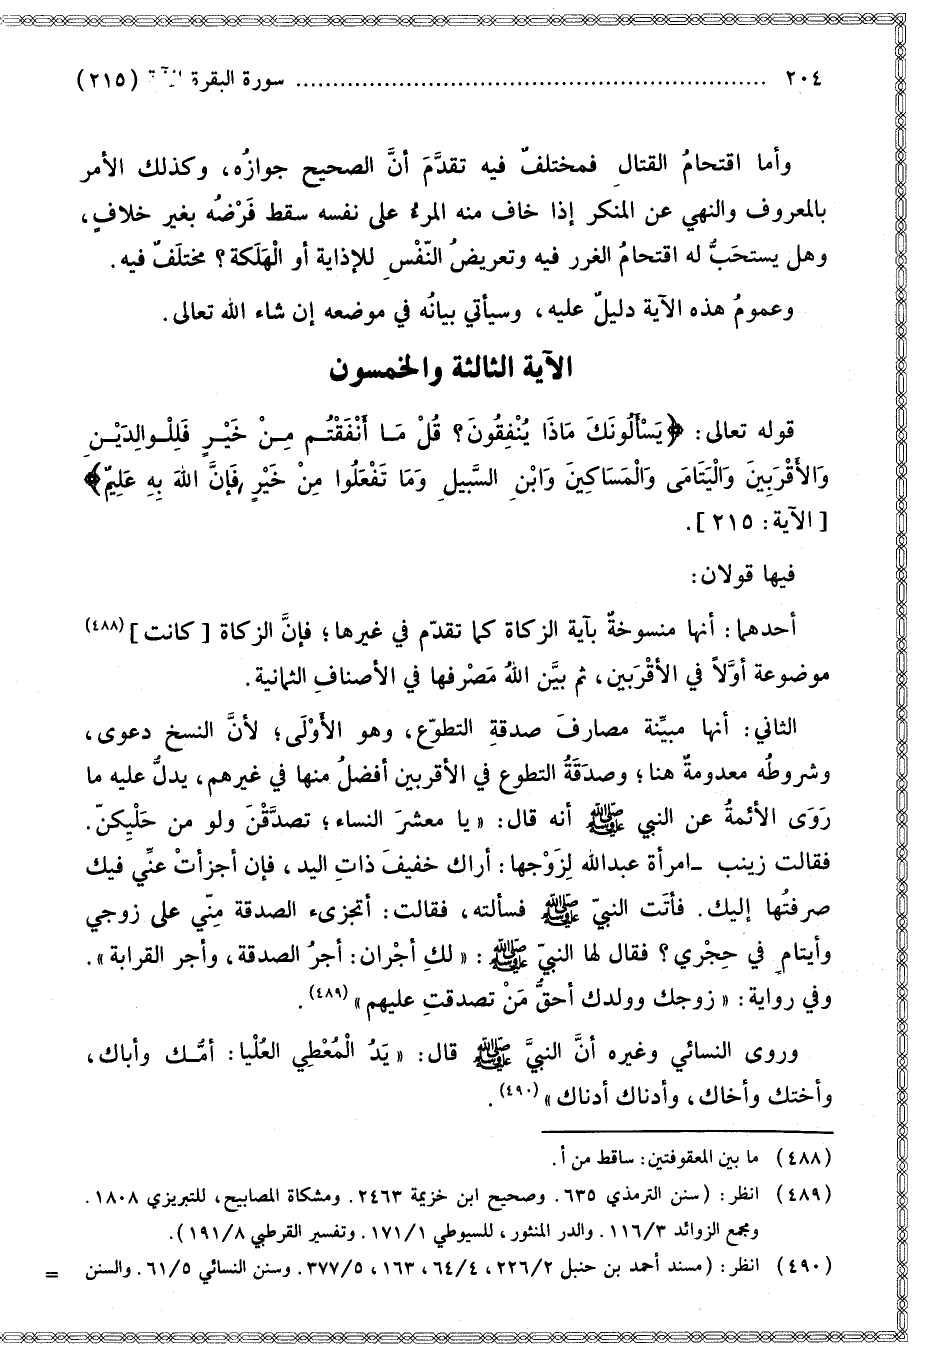 ٢٠٤ ................................................................ سورة البقرة الآية (٢١٥)
وأما اقتحامُ القتالِ فمختلفٌ فيه تقدَّمَ أنَّ الصحيح جوازُه، وكذلك الأمر
بالمعروف والنهي عن المنكر إذا خاف منه المرءُ على نفسه سقط فَرْضُه بغير خلافٍ،
وهل يستحَبُّ له اقتحامُ الغرر فيه وتعريضُ النّفْسِ للإذاية أو الْهَلَكة؟ مختلَفٌ فيه.
وعمومُ هذه الآية دليلٌ عليه، وسيأتي بيانُه في موضعه إن شاء الله تعالى.
الآية الثالثة والخمسون
قوله تعالى: ﴿يَسْأَلُونَكَ مَاذَا يُنْفِقُونَ؟ قُلْ مَا أَنْفَقْتُم مِنْ خَيْرٍ فَلِلْوالِدَيْنِ
وَالأَقْرَبِينَ وَالْيَتَامَى وَالْمَسَاكِينَ وَابْنِ السَّبيلِ وَمَا تَفْعَلُوا مِنْ خَيْرٍ فَإِنَّ اللهَ بِهِ عَلِيمٌ﴾
[الآية: ٢١٥].
فيها قولان:
أحدهما: أنها منسوخةٌ بآية الزكاة كما تقدّم في غيرها؛ فإنَّ الزكاة [كانت](٤٨٨)
موضوعة أوَّلاً في الأقْرَبين، ثم بيَّن اللهُ مَصْرفها في الأصنافِ الثمانية.
الثاني: أنها مبيِّنة مصارفَ صدقةِ التطوّع، وهو الأَوْلَى؛ لأنَّ النسخ دعوى،
وشروطُه معدومةٌ هنا؛ وصدَقَةُ التطوع في الأقربين أفضلُ منها في غيرهم، يدلُّ عليه ما
رَوَى الأئمةُ عن النبي ﷺ أنه قال: «يا معشرَ النساء؛ تصدَّقْنَ ولو من حَلْيِكنّ.
فقالت زينب -امرأة عبدالله لِزَوْجها: أراك خفيفَ ذاتِ اليد، فإن أجزأتْ عنِّي فيك
صرفتُها إليك. فأتَت النبيّ ﷺ فسألته، فقالت: أتجزىء الصدقة مِنّي على زوجي
وأيتامٍ في حِجْري؟ فقال لها النبيّ ﷺ: «لكِ أجْران: أجرُ الصدقة، وأجر القرابة».
وفي رواية: «زوجك وولدك أحقُّ مَنْ تصدقتِ عليهم»(٤٨٩).
وروى النسائي وغيره أنَّ النبيَّ ﷺ قال: «يَدُ الْمُعْطِي العُلْيا: أمّك وأباك،
وأختك وأخاك، وأدناك أدناك»(٤٩٠).
(٤٨٨) ما بين المعقوفتين: ساقط من أ.
(٤٨٩) انظر: (سنن الترمذي ٦٣٥. وصحيح ابن خزيمة ٢٤٦٣. ومشكاة المصابيح، للتبريزي ١٨٠٨.
ومجمع الزوائد ١١٦/٣. والدر المنثور، للسيوطي ١٧١/١. وتفسير القرطبي ١٩١/٨).
(٤٩٠) انظر: (مسند أحمد بن حنبل ٢٢٦/٢، ٦٤/٤، ١٦٣، ٣٧٧/٥. وسنن النسائي ٦١/٥. والسنن =